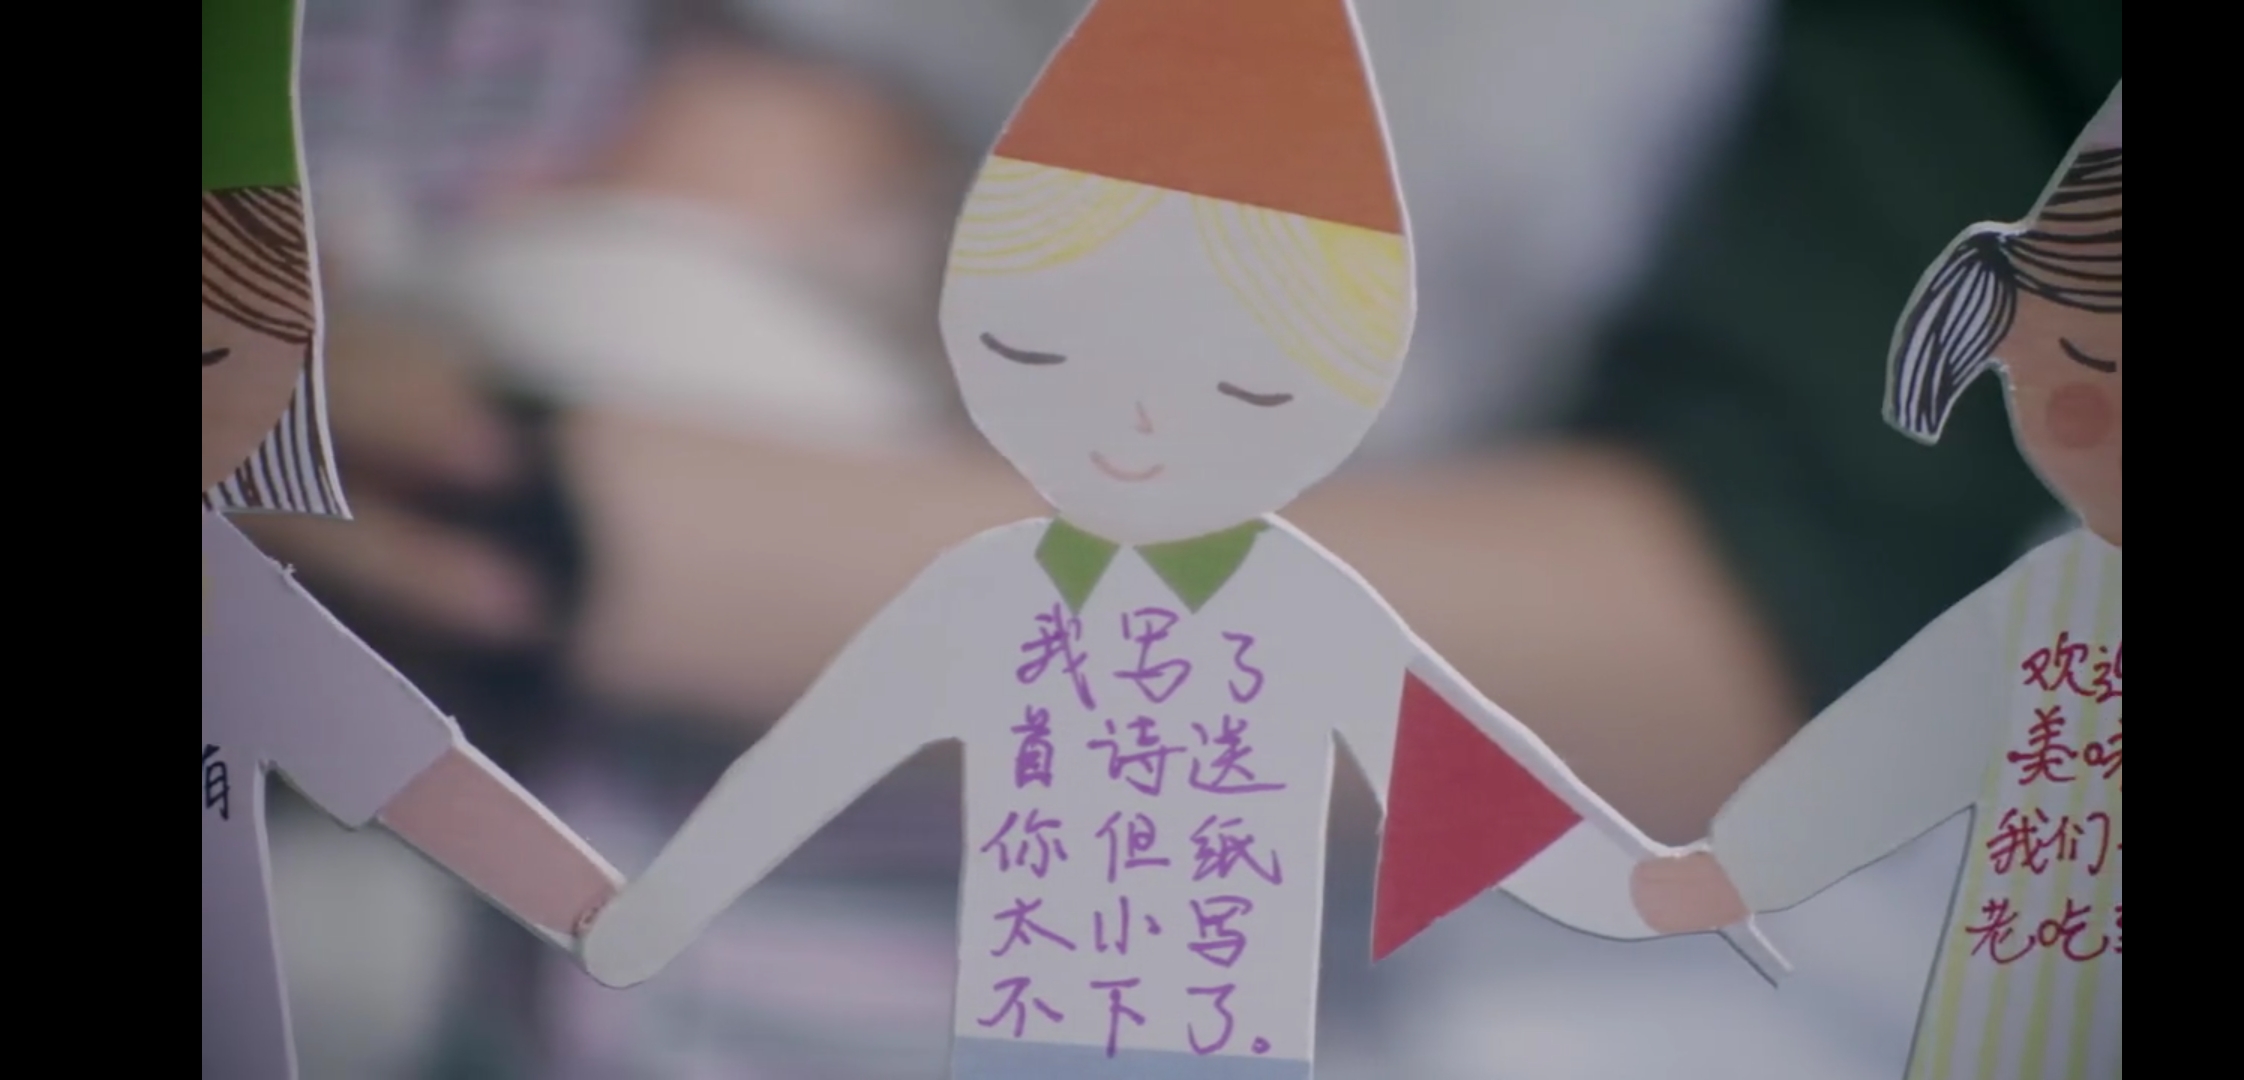 有
我写了
首诗送
你但纸
太小写
不下了。
欢迎
美味
我们
老吃